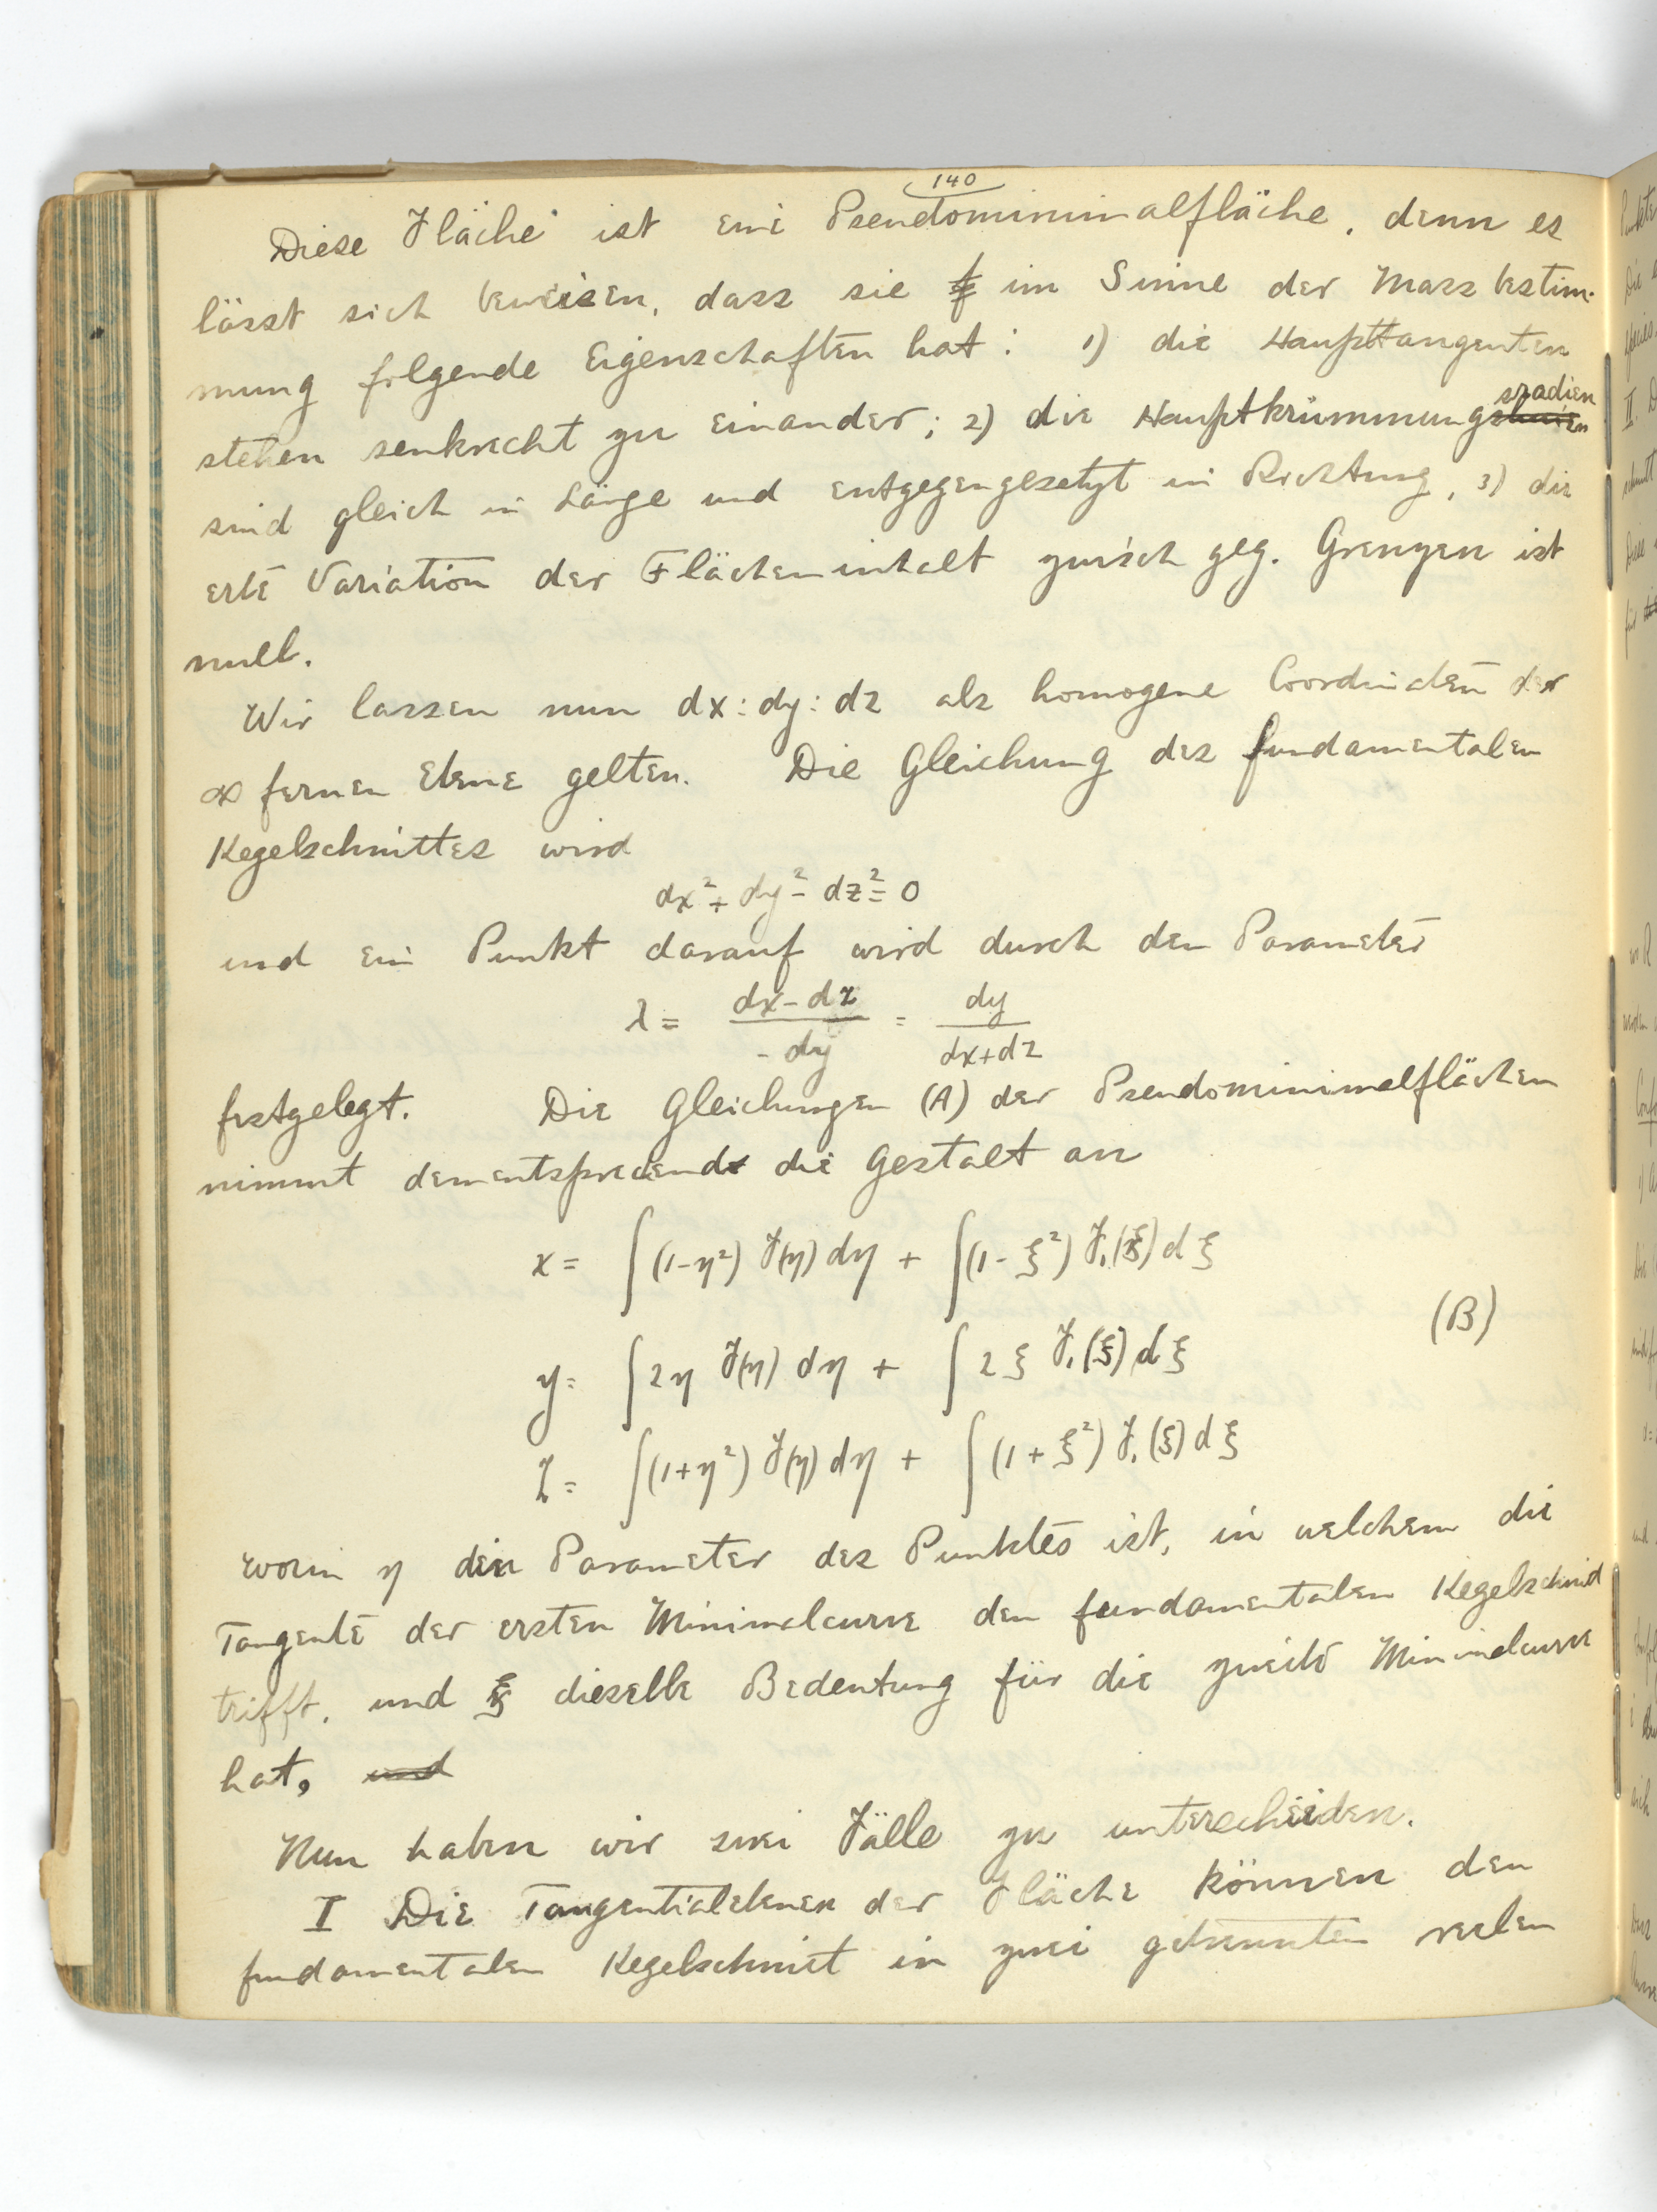 140
Diese Fläche ist eine Pseudominimalfläche, denn es
lässt sich beweisen, dass sie im Sinne der Massbestim-
mung folgende Eigenschaften hat: 1) die Haupttangenten
stehen senkrecht zu einander; 2) die Hauptkrümmungsradien
sind gleich in Länge und entgegengesetzt in Richtung, 3) die
erste Variation der Flächeninhalt zwisch geg. Grenzen ist
null.
Wir lassen nun dx:dy:dz als homogene Coordinaten der
∞ fernen Ebene gelten. Die Gleichung des fundamentalen
Kegelschnittes wird
dx² + dy² - dz² = 0
und ein Punkt darauf wird durch den Parameter
λ = (dx - dz)/(- dy) = dy/(dx + dz)
festgelegt. Die Gleichungen (A) der Pseudominimalflächen
nimmt dementsprechend die Gestalt an
x = ∫(1-η²) F(η) dη + ∫(1-ξ²) F₁(ξ) dξ
y = ∫2η F(η) dη + ∫2ξ F₁(ξ) dξ (B)
z = ∫(1+η²) F(η) dη + ∫(1+ξ²) F₁(ξ) dξ
worin η den Parameter des Punktes ist, in welchem die
Tangente der ersten Minimalcurve den fundamentalen Kegelschnid
trifft, und ξ dieselbe Bedeutung für die zweite Minimalcurve
hat, und
Nun haben wir zwei Fälle zu unterscheiden.
I Die Tangentialebenen der Fläche können den
fundamentalen Kegelschnitt in zwei getrennten reelen